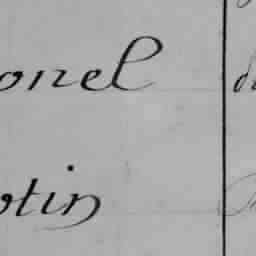 onel
otin